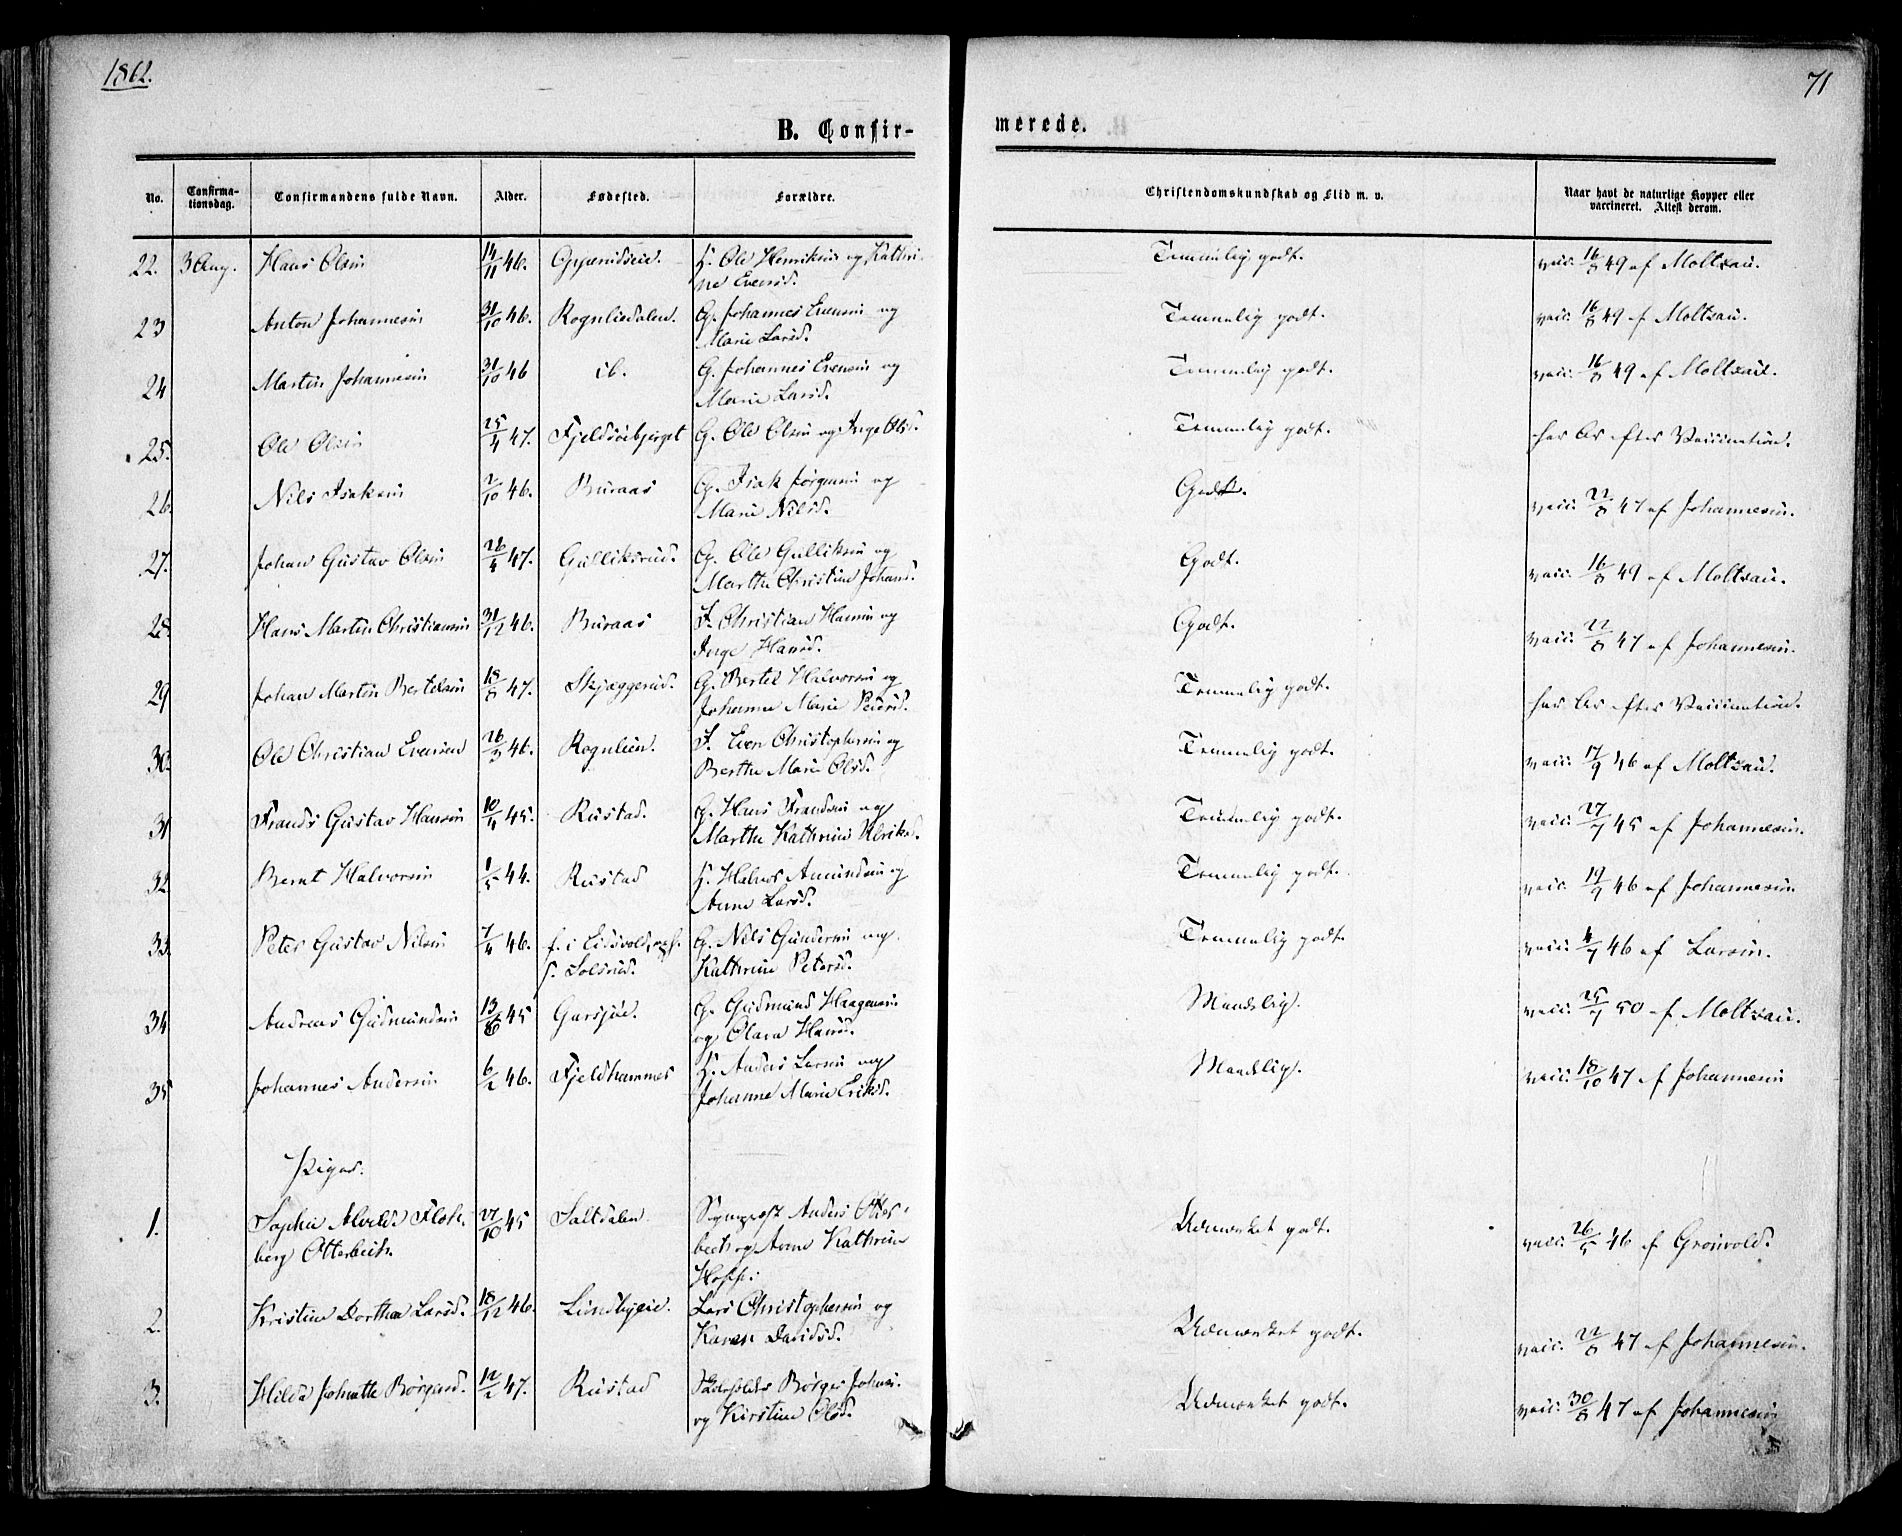 1862.
71
B. Confir-
merede.
No.
Confirma-
tionsdag.
Confirmandens fulde Navn.
Alder.
Fødested.
Forældre.
Christendomskundskab og Flid m. v.
Naar havt de naturlige Kopper eller
vaccineret. Attest derom.
22. 3 Aug. Hans Olsen 14/11 46. H. Ole Henriksen og Kathri- Temmelig godt. vacc. 16/8 49 af Moltzau.
ne Evensd.
23 Anton Johannesen 31/10 46. Rognliedalen. G. Johannes Evensen og Temmelig godt. vacc. 16/8 49 af Moltzau.
Marie Larsd.
24 Martin Johannesen 31/10 46 ib. G. Johannes Evensen og Temmelig godt. vacc. 16/8 49 af Moltzau.
Marie Larsd.
25. Ole Olsen 25/4 47. Fjeldsöebjerget G. Ole Olsen og Inge Olsd. Temmelig godt. har Ar efter Vaccination.
26. Nils Isaksen 2/10 46. Buraas G. Isak Jörgensen og Godt. vacc. 22/8 47 af Johannesen.
Marie Nilsd.
27. Johan Gustav Olsen 26/4 47. Gulliksrud. G. Ole Gulliksen og Godt. vacc. 16/8 49 af Moltzau.
Marthe Christine Johansd.
28. Hans Martin Christiansen 31/12 46. Buraas I. Christian Hansen og Godt. vacc. 22/8 47 af Johannesen.
Inge Hansd.
29 Johan Martin Bertelsen 18/8 47. Skjæggerud. G. Bertel Halvorsen og Temmelig godt. har Ar efter Vaccination.
Johanne Marie Petersd.
30. Ole Christian Evensen 26/3 46. Rognlien. I. Even Christophersen og Temmelig godt. vacc. 17/9 46 af Moltzau.
Berthe Marie Olsd.
31 Frands Gustav Hansen 10/4 45. Rustad. G. Hans Frandsen og Temmelig godt. vacc. 27/7 45 af Johannesen.
Marthe Kathrine Ulriksd.
32 Bernt Halvorsen 1/5 44. Rustad H. Halvor Amundsen og Temmelig godt. vacc. 19/7 46 af Johannesen
Anne Larsd.
33. Peter Gustav Nilsen 7/4 46. f. i Eidsvold, opf. G. Nils Gundersen og Temmelig godt. vacc. 4/7 46 af Larsen.
p. Solsrud. Kathrine Petersd.
34 Andreas Gudmundsen 13/6 45 Garsjöe. G. Gudmund Haagensen Maadelig. vacc. 25/7 50 af Moltzau.
og Olava Hansd.
35 Johannes Andersen 6/2 46. Fjeldhammer H. Anders Larsen og Maadelig. vacc. 18/10 47 af Johannesen
Johanne Marie Eriksd.
Piger.
1. Sophie Alvilde Floh- 27/10 45 Saltdalen. Sognepræst Anders Otter- Udmærket godt. vacc. 26/5 46 af Grönvold.
berg Otterbech. bech og Anne Kathrine
2. Kristine Dorthea Larsd. 18/12 46. Lundbyeie. Lars Christophersen og Udmærket godt. vacc. 22/8 47 af Johannesen.
Karen Davidsd.
3. Hilda Johnette Börgersd. 12/2 47. Rustad Börger Johns. Udmærket godt. vacc. 30/8 47 af Johannesen
og Kirstine Olsd.